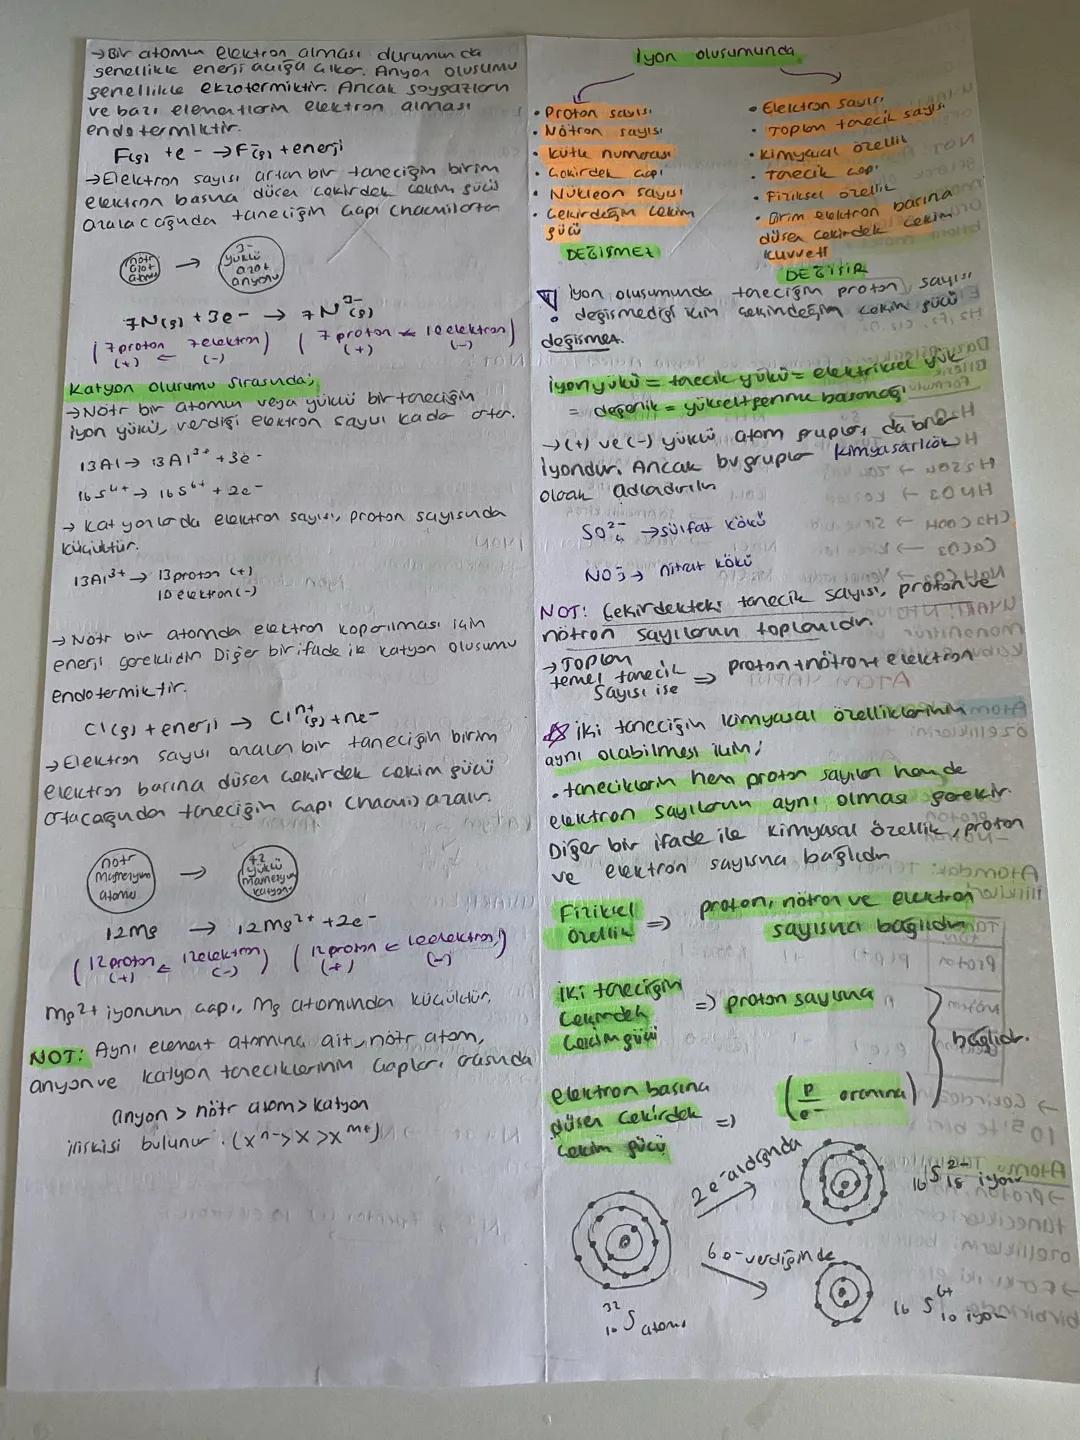 →Bir atomun elektron alması durumunda
genellikle enerji açığa çıkar. Anyon oluşumu
genellikle ekzotermiktir. Ancak soygazların
ve bazı elementlerin elektron alması
endotermiktir.
F(g) + e- → F-(g) + enerji
→Elektron sayısı artan bir taneciğin birim
elektron başına düşen çekirdek çekim gücü
azalacağında taneciğin çapı (hacmi) artar
nötr
azot
atomu
→
3-
yüklü
azot
anyonu
7N(g) + 3e- → 7N3-(g)
(7 proton = 7 elektron) (7 proton < 10 elektron)
(+) (-) (+) (-)
Katyon oluşumu sırasında;
→Nötr bir atomun veya yüklü bir taneciğin
iyon yükü, verdiği elektron sayısı kadar artar.
13Al → 13Al3+ + 3e-
16S4+ → 16S6+ + 2e-
→ Katyonlarda elektron sayısı, proton sayısından
küçüktür.
13Al3+ → 13 proton (+)
10 elektron (-)
→ Nötr bir atomdan elektron koparılması için
enerji gereklidir. Diğer bir ifade ile katyon oluşumu
endotermiktir.
Cl(g) + enerji → Cln+(g) + ne-
→Elektron sayısı azalan bir taneciğin birim
elektron başına düşen çekirdek çekim gücü
artacağından taneciğin çapı (hacmi) azalır.
nötr
magnezyum
atomu
→
+2
yüklü
magnezyum
katyonu
12Mg → 12Mg2+ + 2e-
(12 proton = 12 elektron) (12 proton < 10 elektron)
(+) (-) (+) (-)
Mg2+ iyonunun çapı, Mg atomundan küçüktür.
NOT: Aynı element atomuna ait, nötr atom,
anyon ve katyon taneciklerinin çapları arasında
anyon > nötr atom > katyon
ilişkisi bulunur. (Xn- > X > Xm+)
İyon oluşumunda
• Proton sayısı
• Nötron sayısı
• Kütle numarası
• Çekirdek çapı
• Nükleon sayısı
• Çekirdeğin çekim
gücü
DEĞİŞMEZ
• Elektron sayısı
• Toplam tanecik sayısı
• Kimyasal özellik
• Tanecik çapı
• Fiziksel özellik
• Birim elektron başına
düşen çekirdek çekim
kuvveti
DEĞİŞİR
İyon oluşumunda taneciğin proton sayısı
değişmediği için çekirdeğin çekim gücü
değişmez.
İyon yükü = tanecik yükü = elektriksel yük
= değerlik = yükseltgenme basamağı
→(+) ve (-) yüklü atom grupları da birer
iyondur. Ancak bu gruplar kimyasal kök
olarak adlandırılır
SO4 2- → sülfat kökü
NO3- → nitrat kökü
NOT: Çekirdekteki tanecik sayısı, proton ve
nötron sayılarının toplamıdır.
→Toplam
temel tanecik
sayısı ise ⇒ proton + nötron + elektron
☆ İki taneciğin kimyasal özelliklerinin
aynı olabilmesi için;
• taneciklerin hem proton sayıları hem de
elektron sayılarının aynı olması gerekir.
Diğer bir ifade ile kimyasal özellik, proton
ve elektron sayısına bağlıdır
Fiziksel
özellik ⇒ proton, nötron ve elektron
sayısına bağlıdır
İki taneciğin
çekirdek
çekim gücü ⇒ proton sayısına
bağlıdır.
elektron başına
düşen çekirdek
çekim gücü ⇒ (p/e- oranına)
2e- aldığında
16S 2- 18 iyonu
6e- verdiğinde
16 S 6+ 10 iyonu
32 16 S atomu